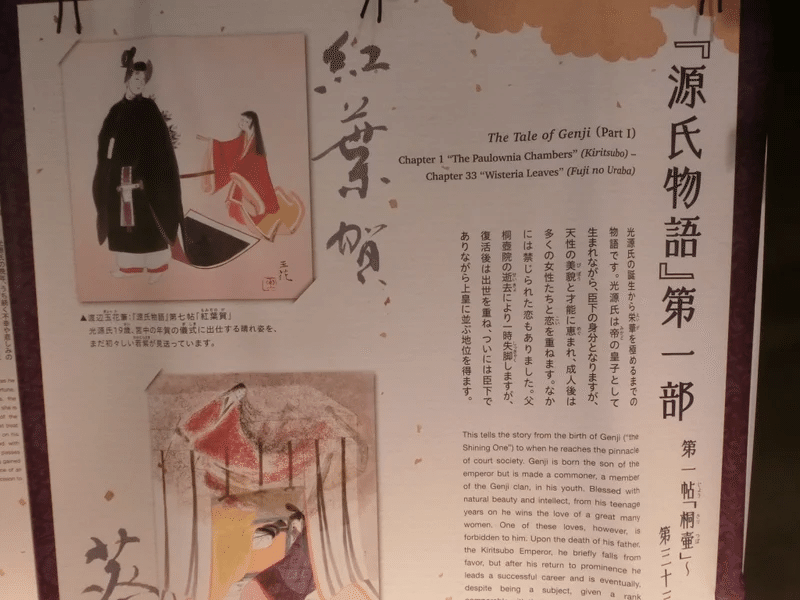 『源氏物語』第一部
第一帖「桐壷」～
第三十三
The Tale of Genji (Part I)
Chapter 1 “The Paulownia Chambers” (Kiritsubo) –
Chapter 33 “Wisteria Leaves” (Fuji no Uraba)
光源氏の誕生から栄華を極めるまでの
物語です。光源氏は帝の皇子として
生まれながら、臣下の身分となりますが、
天性の美貌と才能に恵まれ、成人後は
多くの女性たちと恋を重ねます。なか
には禁じられた恋もありました。父
桐壺院の逝去により一時失脚しますが、
復活後は出世を重ね、ついには臣下で
ありながら上皇に並ぶ地位を得ます。
This tells the story from the birth of Genji (“the
Shining One”) to when he reaches the pinnacle
of court society. Genji is born the son of the
emperor but is made a commoner, a member
of the Genji clan, in his youth. Blessed with
natural beauty and intellect, from his teenage
years on he wins the love of a great many
women. One of these loves, however, is
forbidden to him. Upon the death of his father,
the Kiritsubo Emperor, he briefly falls from
favor, but after his return to prominence he
leads a successful career and is eventually,
despite being a subject, given a rank
紅葉賀
玉花
▲渡辺玉花筆：『源氏物語』第七帖「紅葉賀」
光源氏19歳。宮中の年賀の儀式に出仕する晴れ姿を、
まだ初々しい若紫が見送っています。
葵